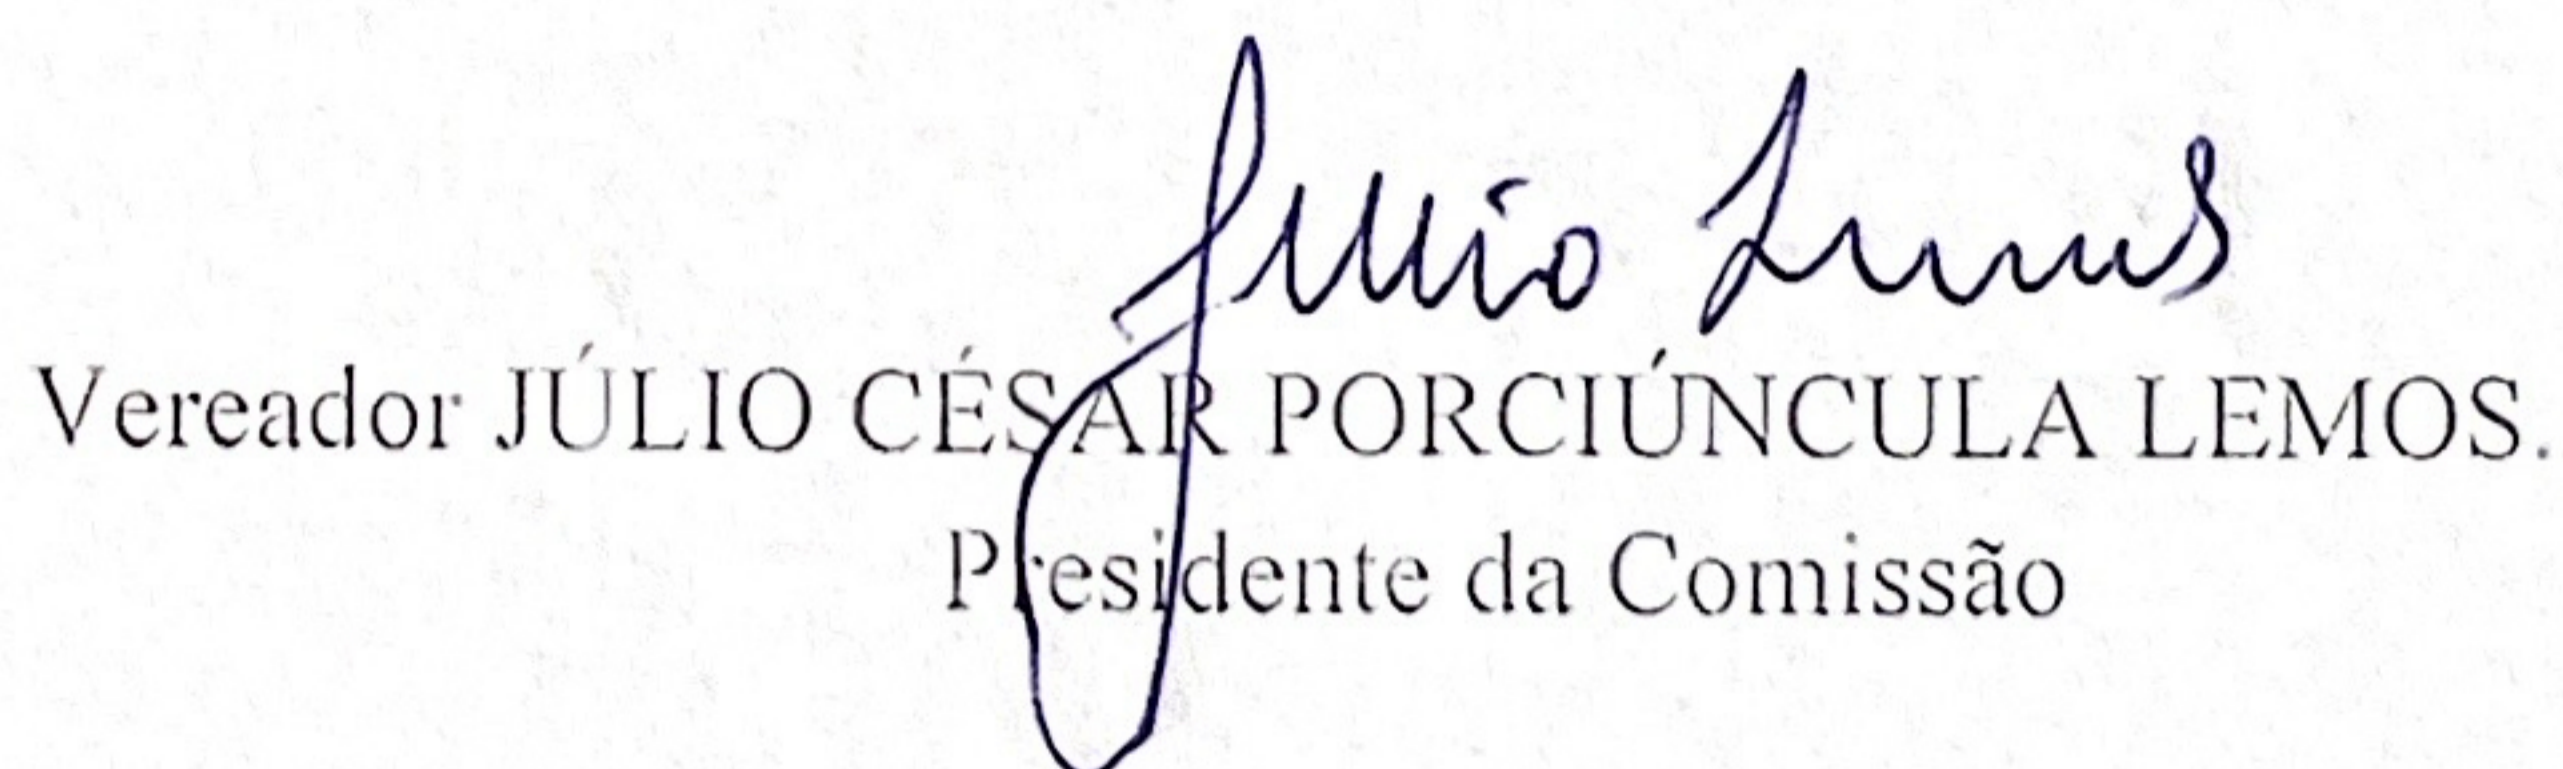 Julio Lemos
Vereador JÚLIO CÉSAR PORCIÚNCULA LEMOS.
Presidente da Comissão